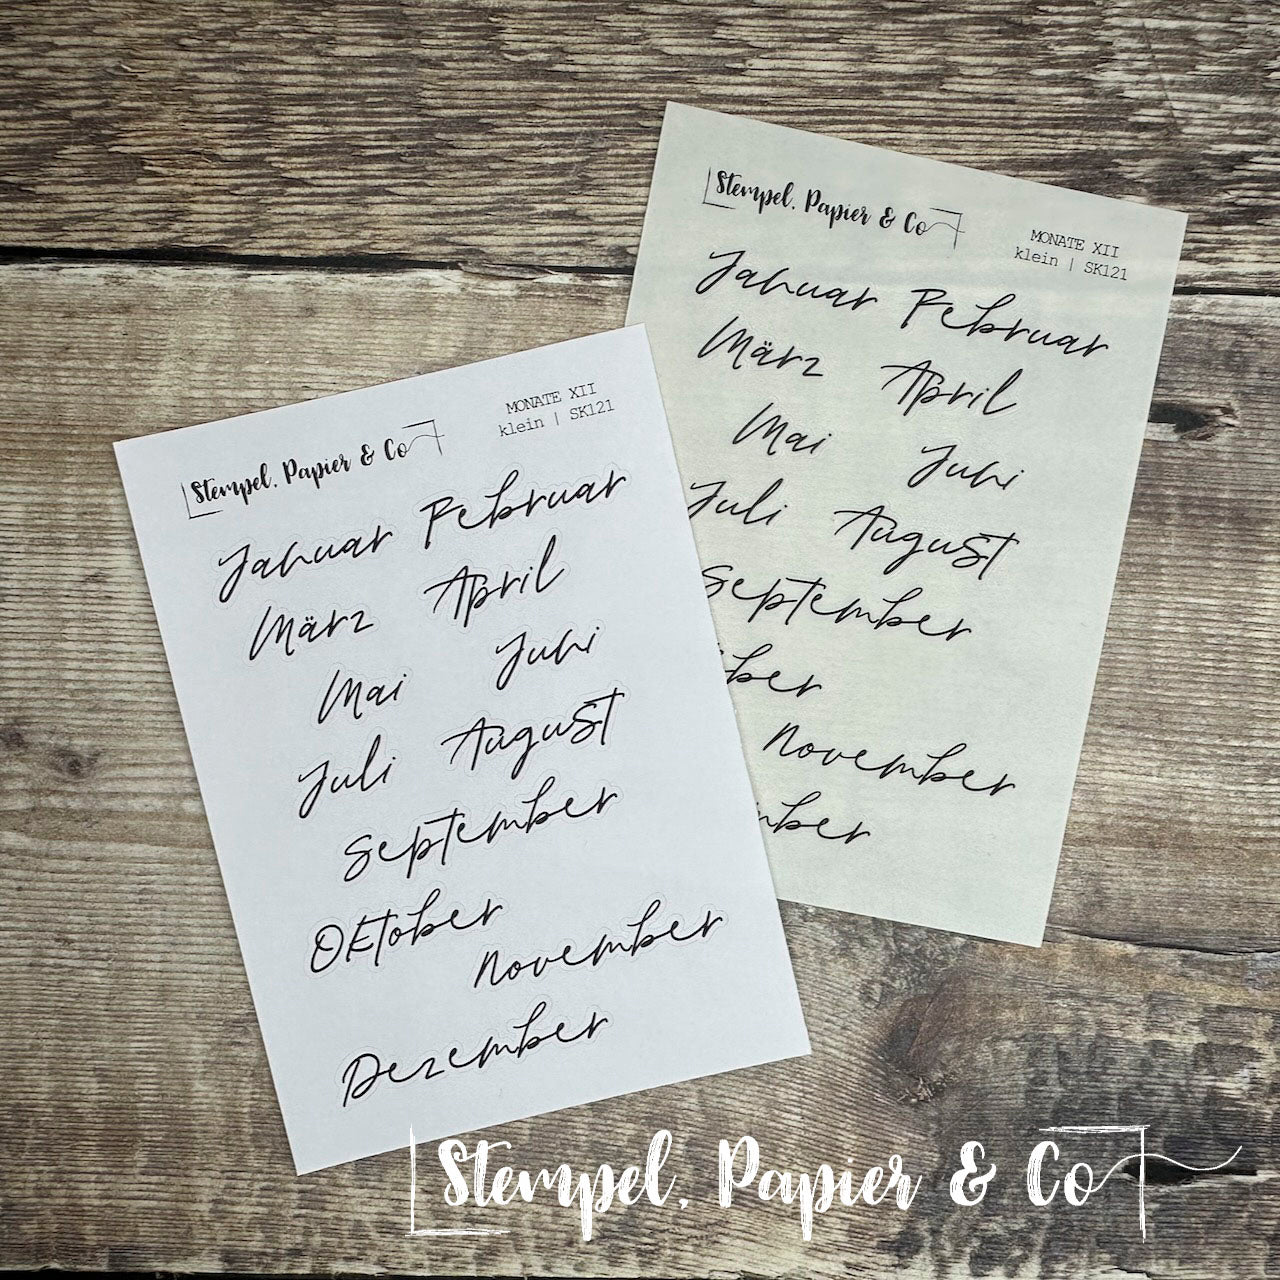 Stempel, Papier & Co
MONATE XII
klein | SK121
Januar Februar
März April
Mai Juni
Juli August
September
Oktober
November
Dezember
Stempel, Papier & Co
MONATE XII
klein | SK121
Januar Februar
März April
Mai Juni
Juli August
September
ber
November
mber
Stempel, Papier & Co